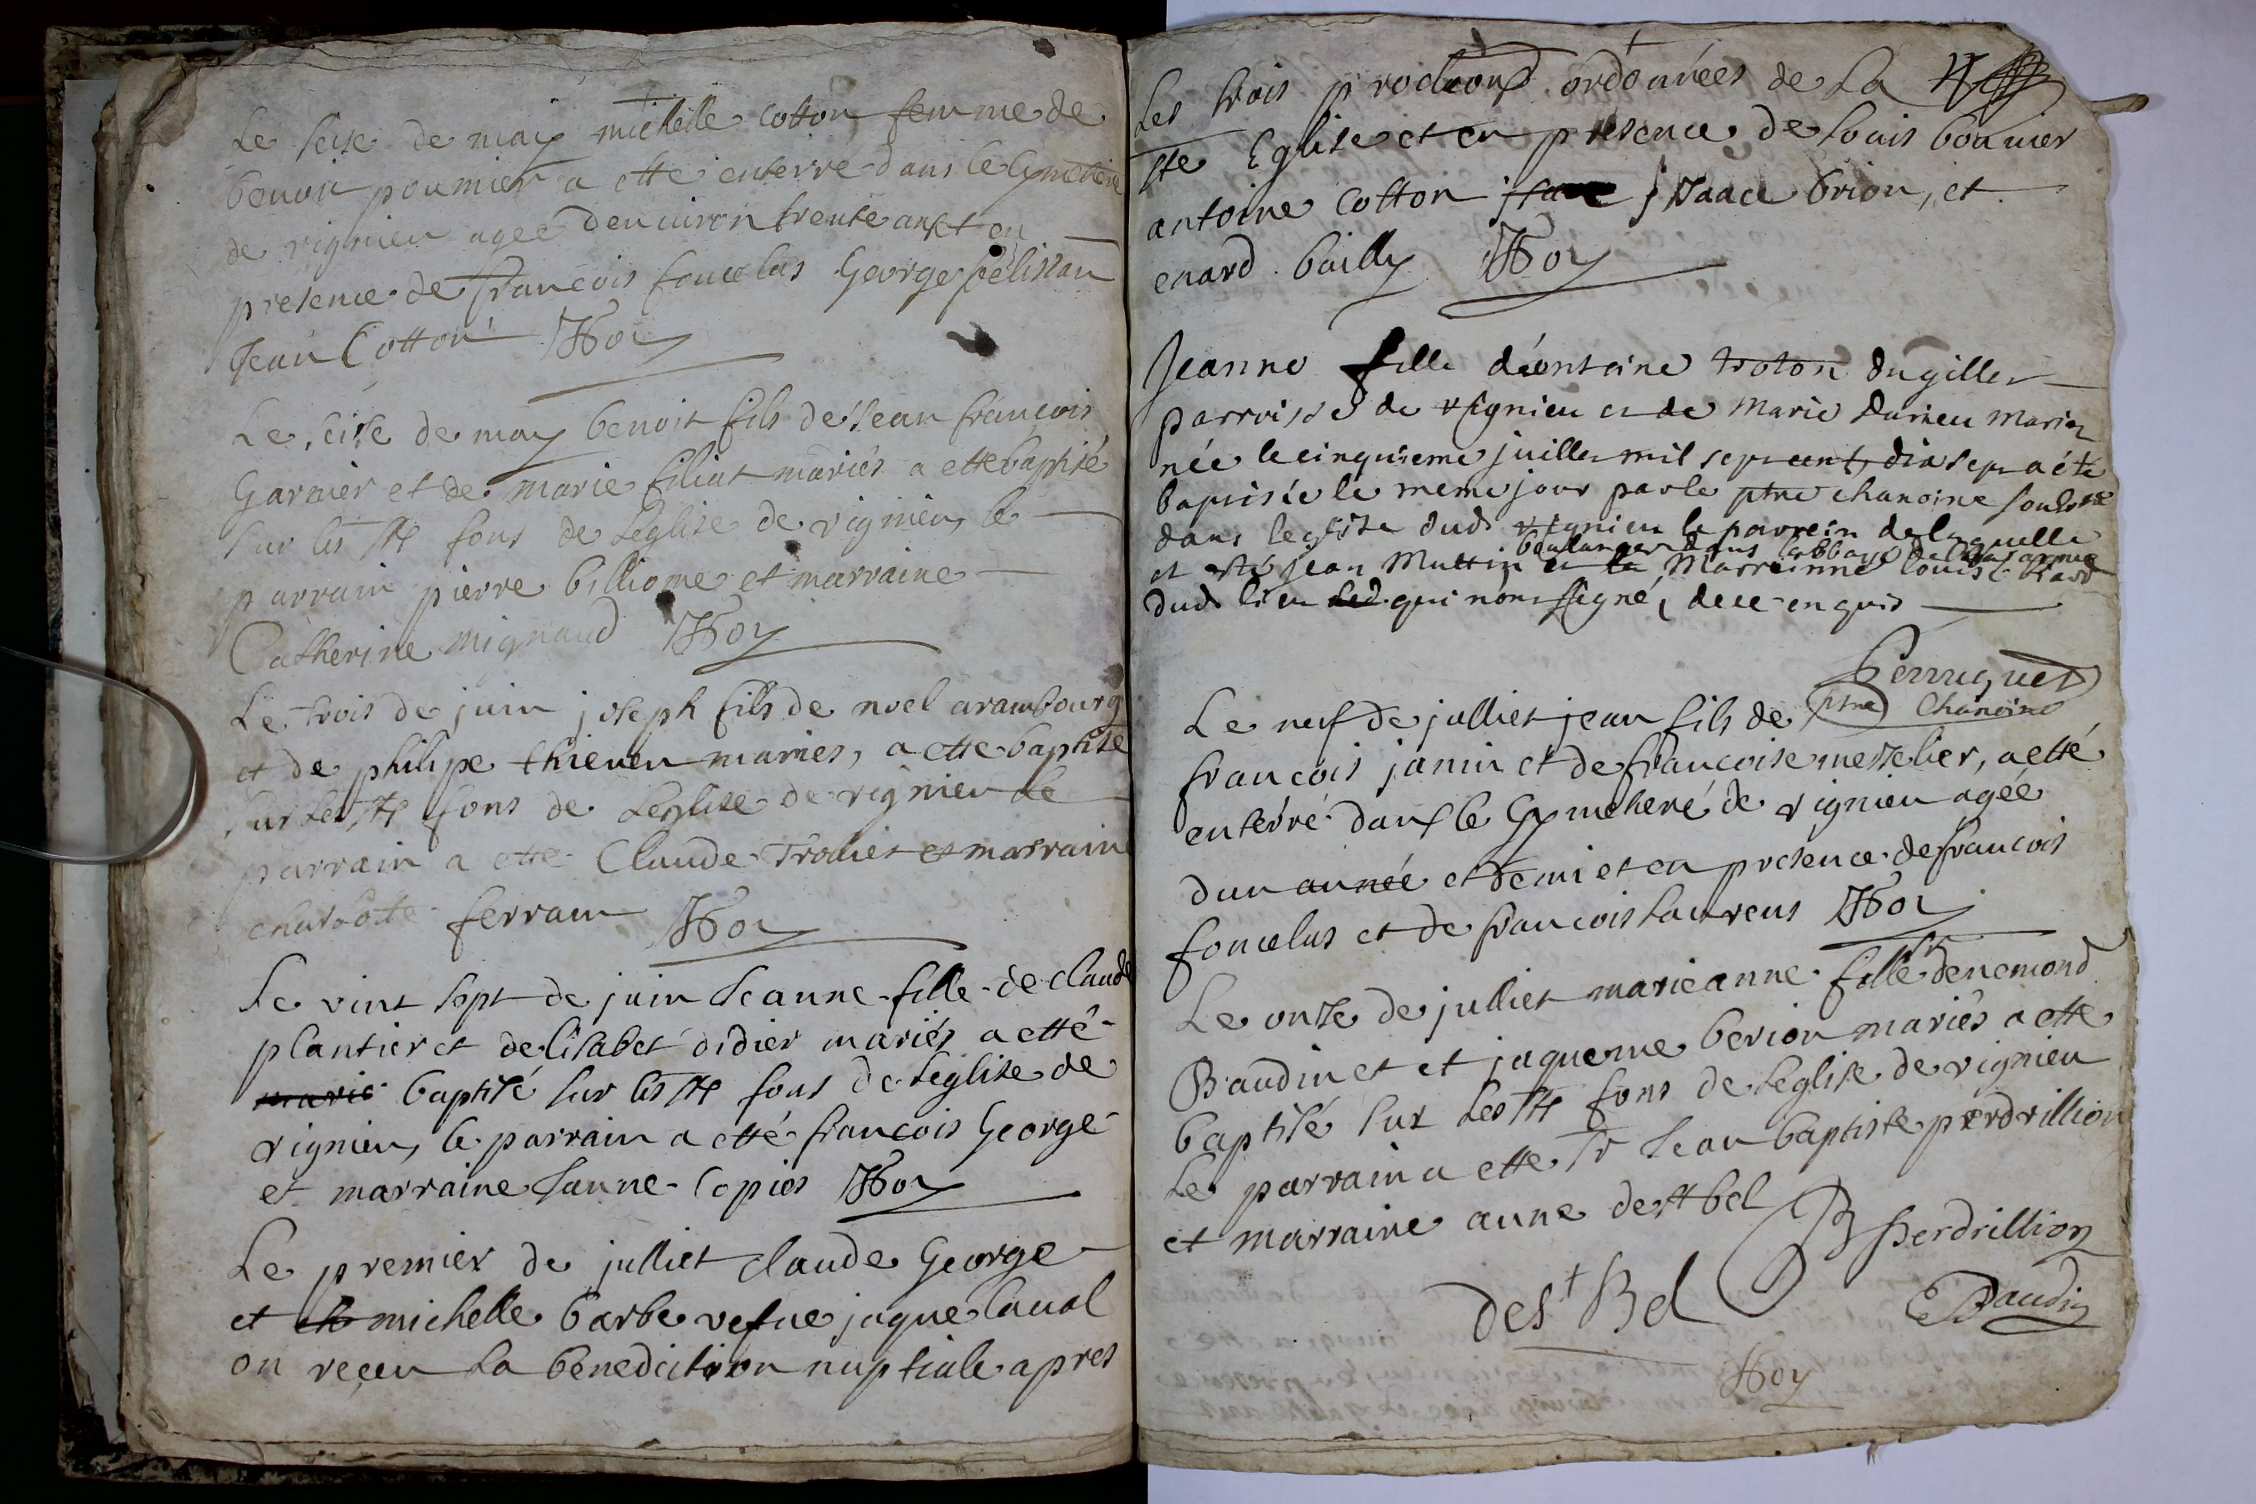 Le seise de may michelle cotton femme de
benoit poumier a etté enterré dans le Cymetiere
de vignieu agee denviron trente ans et en
presence de françois foucelus George pelissan
Jean Cotton Roy
Le seise de may benoit fils de Jean françois
Garnier et de marie filiat mariés a etté baptisé
sur les sts fons de Leglise de vignieu, le
parrain pierre billiome et marraine
Catherine mignaud Roy
Le trois de juin joseph fils de noel arambourg
et de philipe thievin maries, a etté baptisé
sur les sts fons de Leglise de vignieu Le
parrain a etté Claude Trolliet et marraine
charlotte ferran Roy
Le vint sept de juin Jeanne fille de claude
plantier et de lisabet didier mariés a etté
marie baptisé sur les sts fons de Leglise de
vignieu, le parrain a etté françois George
et marraine Janne Copier Roy
Le premier de julliet claude George
et michelle barbe vefue jaque laual
on reçeu La benediction nuptiale apres
Les trois proclaons ordonnées de La
ste Eglise et en presence de Louis bonnier
antoine Cotton Isaace brion, et
enard bailly Roy
Jeanne fille dantoine troton dugillier
parroisse de vignieu et de Marie Durieu Mariez
née le cinquieme juillet mil sept cent dix sept a été
baptisée le meme jour par le ptre chanoine soubsne
dans leglise dud vignieu le parrein de laquelle
et été jean Muttin boulanger dans labbaye de
et la Marreinne Louise
dud lieu qui nont signé, de ce enquis
Perruquet
ptre Chanoine
Le neuf de julliet jean fils de
françois janin et de françoise messelier, a etté
enterré dans le Cymeteré de vignieu agée
dun année et demi et en presence de françois
foucelus et de françois Laurens Roy
Le onse de julliet marie anne fille de sr nemond
Baudin et et jaqueme berion mariés a etté
baptisé sur Les sts fons de Leglise de vignieu
Le parrain a etté Sr Jean baptiste perdrillion
et marraine anne de st bel
B Perdrillion
De st Bel
Baudin
Roy